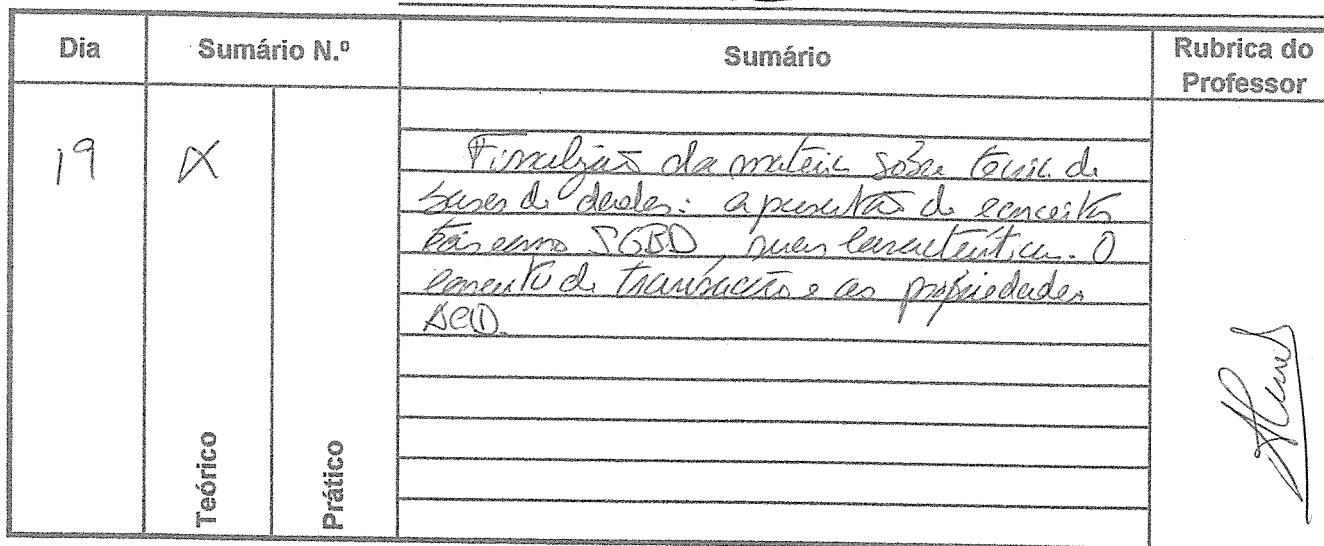 Dia
Sumário N.º
Sumário
Rubrica do
Professor
19
X
Finalização da matéria sobre teoria de
bases de dados: apresentação de conceitos
tais como SGBD, suas características. O
conceito de transacção e as propriedades
ACID.
Teórico
Prático